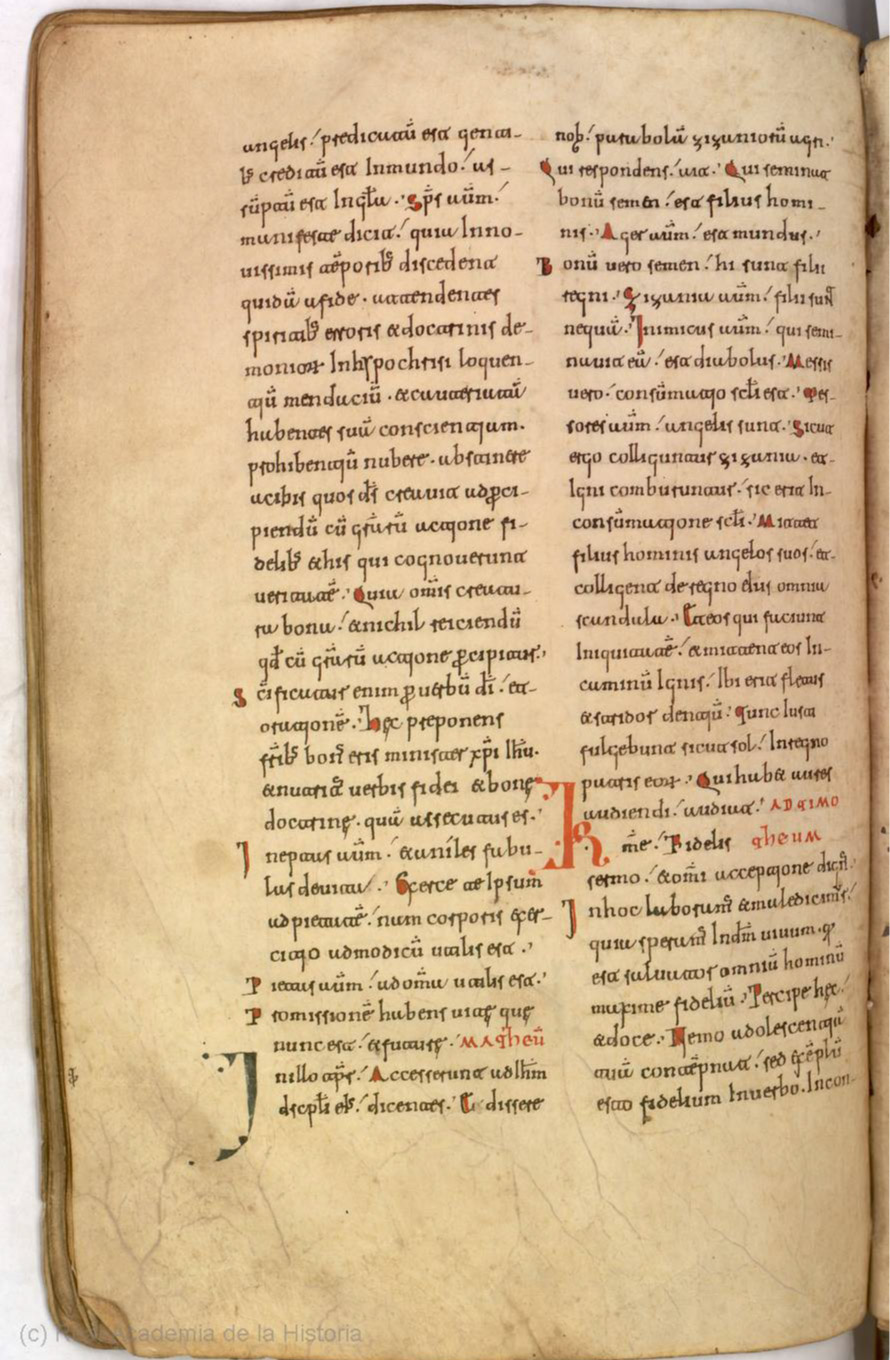 angelis. predicatū est genti-
bs creditū est Inmundo. as-
sūptū est Inglā. Sps aūm.
manifeste dicit. quia Inno-
uissimis tēporibs discedent
quidā afide. attendentes
spiritibs erroris et doctrinis de-
moniorum Inhipochrisi loquen-
tiū mendaciū. et cauteriatā
habentes suā conscientiam.
prohibentiū nubere. abstinere
acibis quos ds creauit adperci-
piendū cū grārū actione fi-
delibs et his qui cognouerunt
ueritatē. Quia omīs creatu-
ra bona. et nichil reiciendū
qd cū grārū actione percipitur.
Scīficatur enim per uerbū dī. et
orationē. Hec preponens
frībs bonus eris minister xpi Ihū.
enutritus uerbis fidei et bonę
doctrinę. quā assecutus es.
Ineptas aūm. et aniles fabu-
las deuita. Exerce te Ipsum
ad pietatē. nam corporis exer-
citio admodicū utilis est.
Pietas aūm. ad omīa utilis est.
Promissionē habens uitę quę
nunc est. et futurę. MATheū
In illo tprē. Accesserunt ad Ihm
dscpli eius. dicentes. Edissere
nobis. parabolā zizaniorū agri.
Qui respondens. ait. Qui seminat
bonū semen. est filius homi-
nis. Ager aūm. est mundus.
Bonū uero semen. hi sunt filii
regni. Zizania aūm. filii sunt
nequā. Inimicus aūm. qui semi-
nauit eū. est diabolus. Messis
uero. consūmatio scli est. Mes-
sores aūm. angeli sunt. Sicut
ergo colliguntur zizania. et
Igni comburuntur. sic erit In-
consūmatione scli. Mittet
filius hominis angelos suos. et
colligent de regno eius omnia
scandala. Et eos qui faciunt
Iniquitatē. et mittent eos In-
caminū Ignis. Ibi erit fletus
et stridor dentiū. Tunc Iusti
fulgebunt sicut sol. Inregno
patris eorum. Qui habet aures
audiendi. audiat. AD TIMO
Krme. Fidelis Theum
sermo. et omī acceptione dign.
Inhoc laboramus et maledicimur.
quia speramus Indm uiuum. qui
est saluator omniū hominū
maxime fideliū. Precipe hęc.
et doce. Nemo adolescentiā
tuā contēpnat. sed exēplū
esto fidelium Inuerbo. Incon-
(c) Real Academia de la Historia